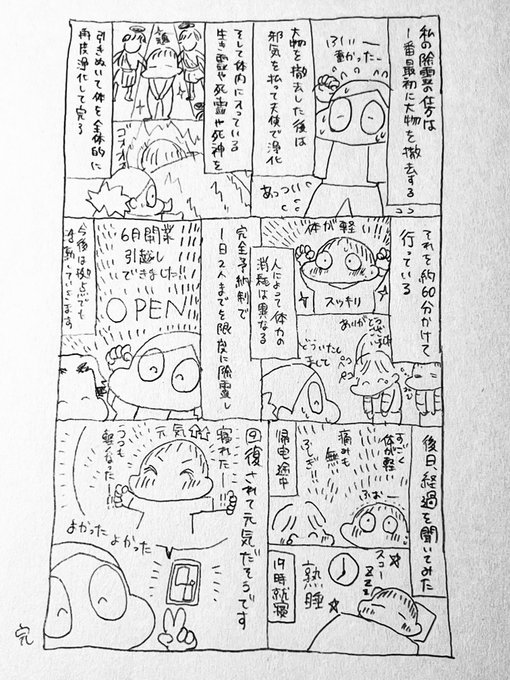 私の除霊の仕方は
1番最初に大物を撤去する
ふぃー
動かったー
大物を撤去した後は
邪気を払って天使で浄化
あっつい
ココ
そして体内に入っている
生き霊や死霊や死神を
引きぬいて体を全体的に
再度浄化して完了
それを約60分かけて
行っている
体が軽い
スッキリ
ありがとう
ございます
ペコ
ペコ
どういたし
まして
人によって体力の
消耗は異なる
完全予約制で
1日2人までを限度に除霊し
6月開業
引越し
できました!!
OPEN
今後は拠点でも
後日、経過を聞いてみた
すごく
体が軽い
痛みも
無い
ふしぎ!!
ふぉー
帰宅途中
スコー
ZZZ
熟睡
19時就寝
回復されて元気だそうです
元気⇧⇧
寝れたー!!
うつも
軽くなったー!!
よかった よかった
完